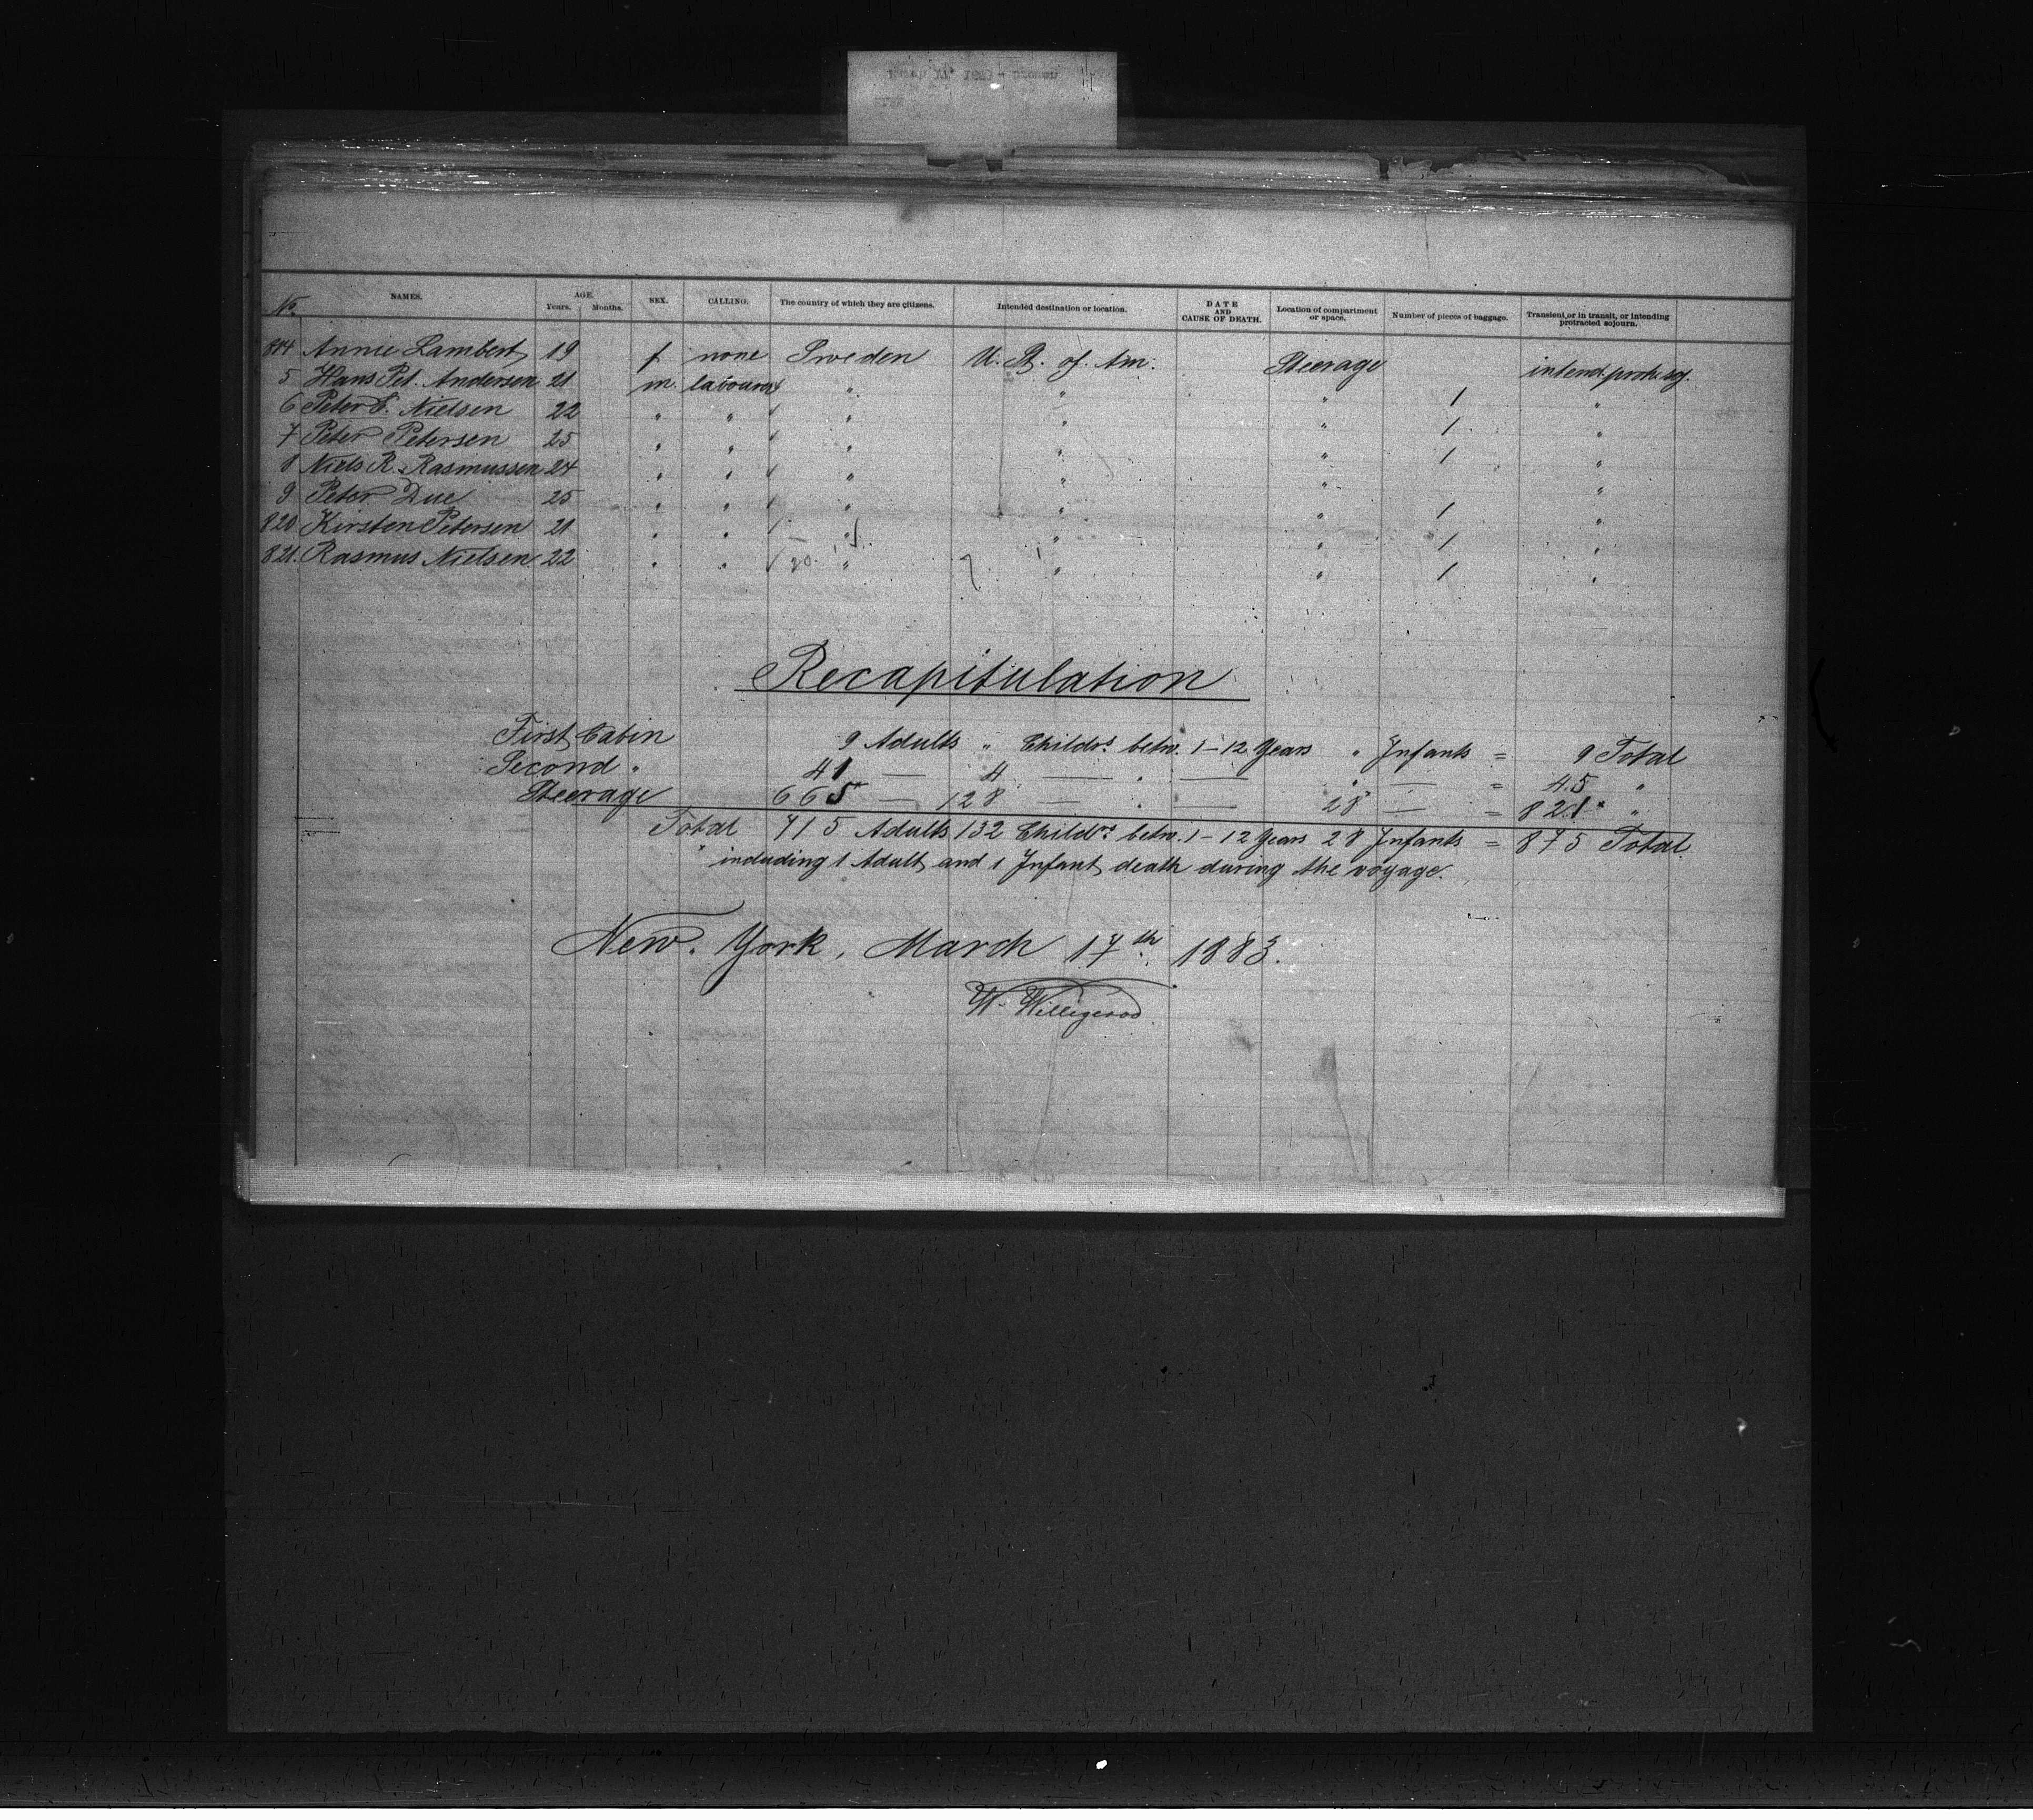 No. NAMES. AGE. Years. Months. SEX. CALLING. The country of which they are citizens. Intended destination or location. DATE AND CAUSE OF DEATH. Location of compartment or space. Number of pieces of baggage. Transient, or in transit, or intending protracted sojourn.
814 Annie Lambert 19 f none Sweden U. St. of Am. Steerage intend. protr. soj.
5 Hans Pet. Andersen 21 m. labourer " " " 1 "
6 Peter C. Nielsen 22 " " " " " 1 "
7 Peter Petersen 25 " " " " " 1 "
8 Niels R. Rasmussen 24 " " " " " "
9 Peter Due 25 " " " " " 1 "
820 Kirsten Petersen 21 " " " " " 1 "
821. Rasmus Nielsen 22 " " " " " 1 "
Recapitulation
First Cabin 9 Adults " Childrs. betw. 1-12 Years " Infants = 9 Total
Second " 41 — 4 — " — " — = 45 "
Steerage 665* — 128 — " — 28 — = 821* "
Total 715 Adults 132 Childrs. betw. 1-12 Years 28 Infants = 875 Total.
* including 1 Adult and 1 Infant death during the voyage.
New. York, March 17th. 1883.
W. Willigerod